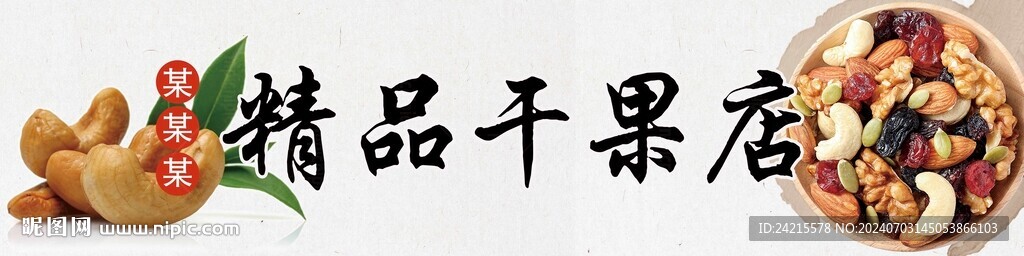 某某某
精品干果店
昵图网 www.nipic.com
ID:24215578 NO:20240703145053866103